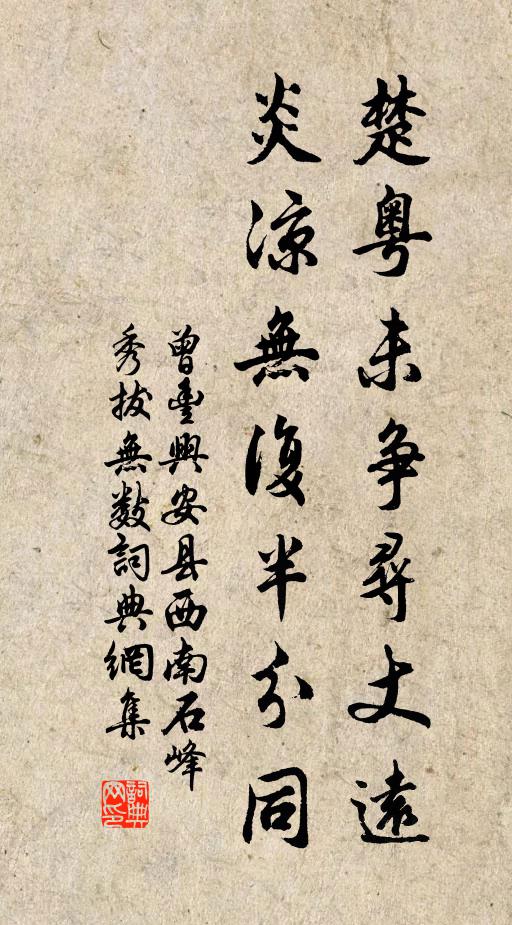 楚粤未争尋丈遠
炎涼無復半分同
曾豊興安县西南石峰
秀拔無数詞典網集
詞典网印